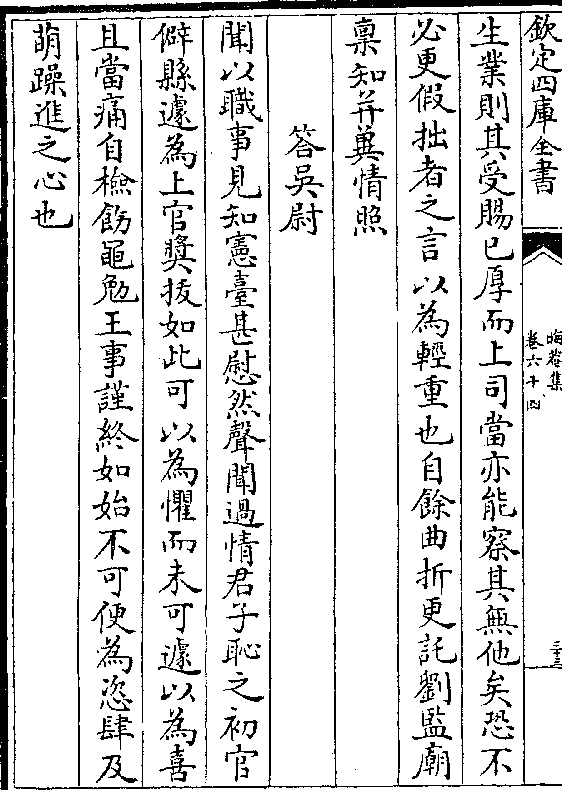 欽定四庫全書
晦菴集
卷六十四
三十三
生業則其受賜已厚而上司當亦能察其無他矣恐不
必更假拙者之言以為輕重也自餘曲折更託劉監廟
稟知并冀情照
答吳尉
聞以職事見知憲臺甚慰然聲聞過情君子恥之初官
僻縣遽為上官奬拔如此可以為懼而未可遽以為喜
且當痛自檢飭黽勉王事謹終如始不可便為恣肆及
萌躁進之心也